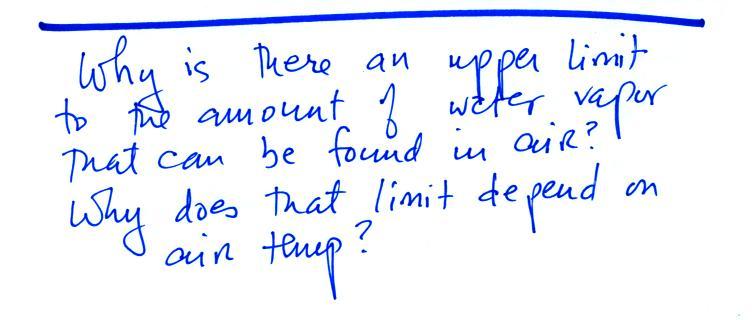 Why is there an upper limit
to the amount of water vapor
that can be found in air?
Why does that limit depend on
air temp?